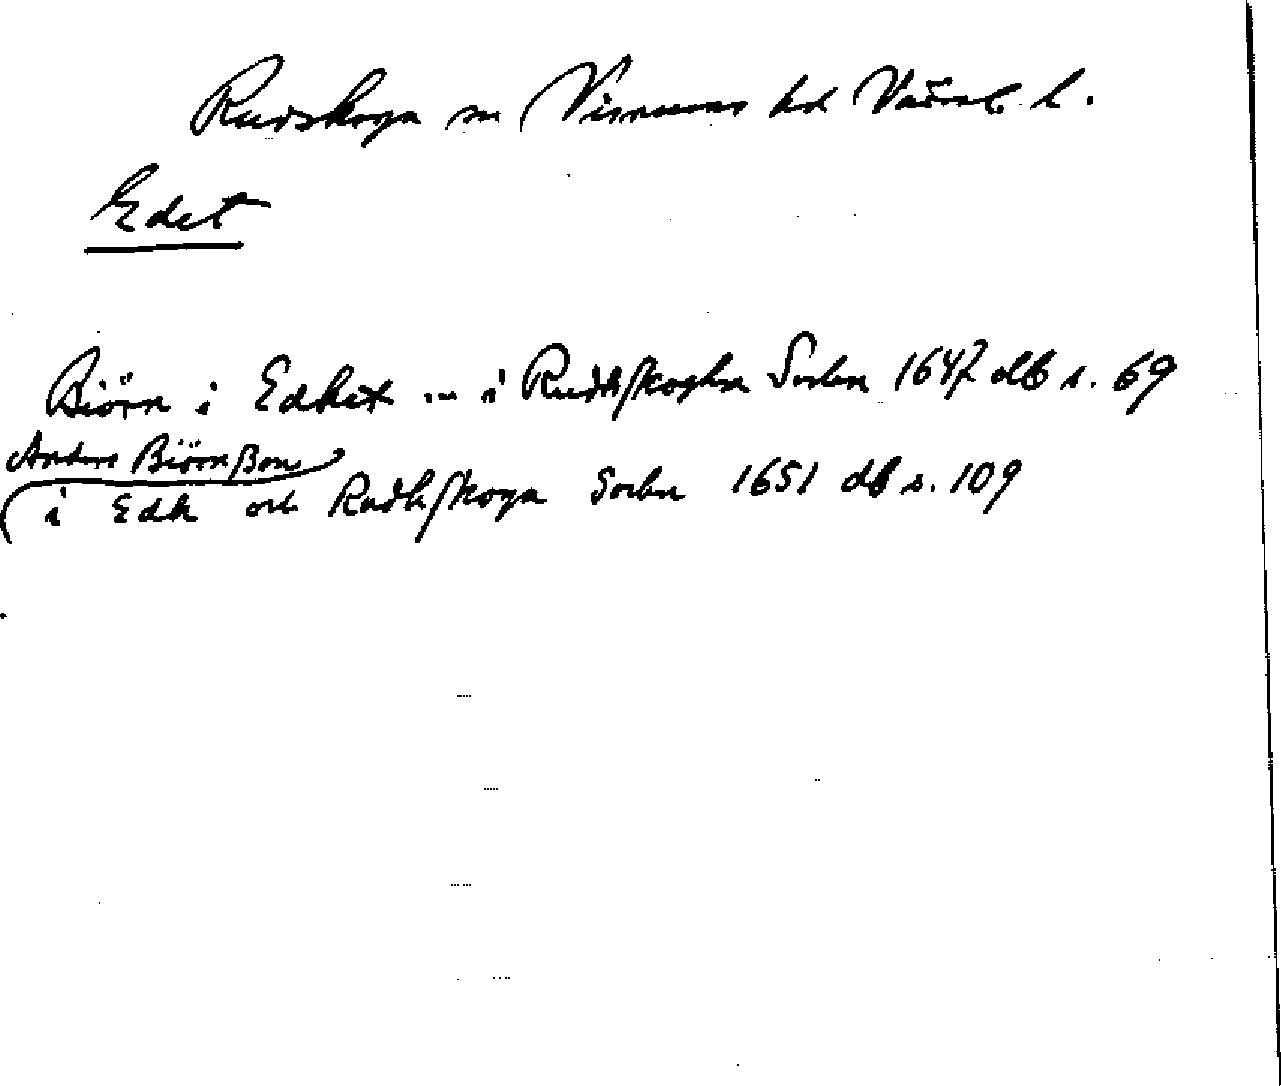 Rudskoga sn Visnums hd Värml. l.
Edet
Biörn i Edhet ... i Rudhskogha Sochn 1647 db s. 69
Anders Biörnßon
i Edh och Rudhskoga Sochn 1651 db s. 109